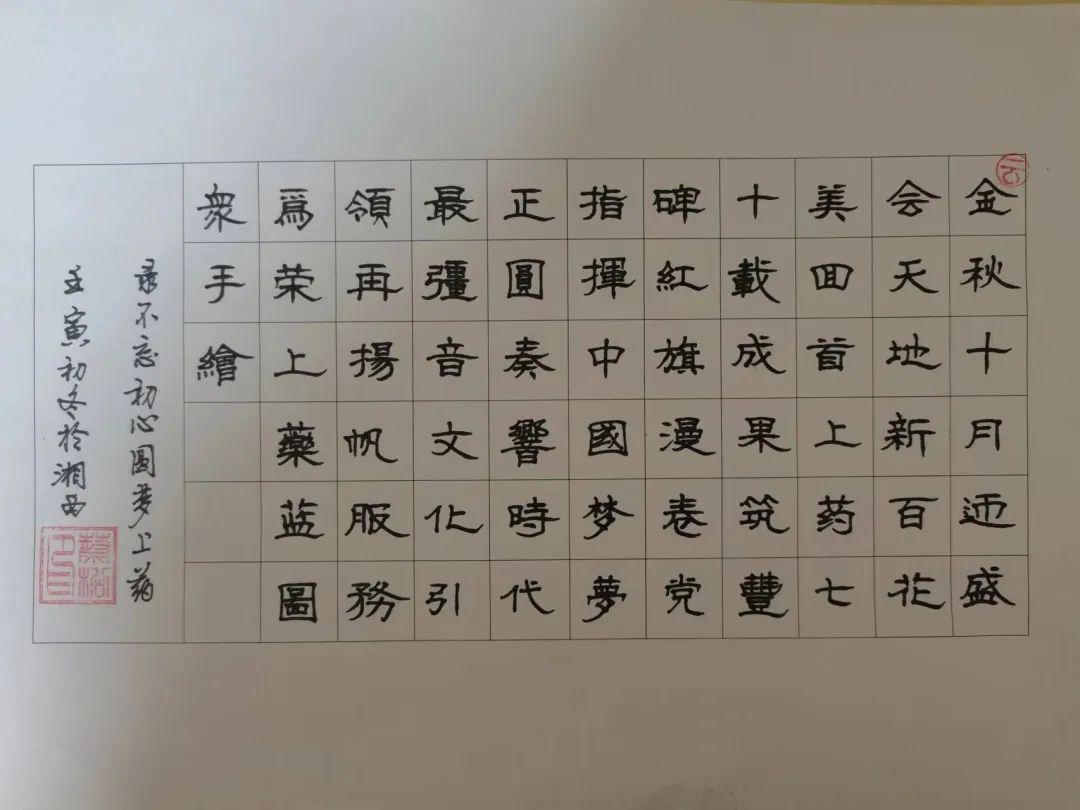 金秋十月迊盛
会天地新百花
美回首上药七
十載成果筑豐
碑紅旗漫卷党
指揮中國梦夢
正圓奏響時代
最彊音文化引
領再揚帆服務
爲荣上藥蓝圖
衆手繪
录不忘初心圆梦上药
壬寅初冬於湘西